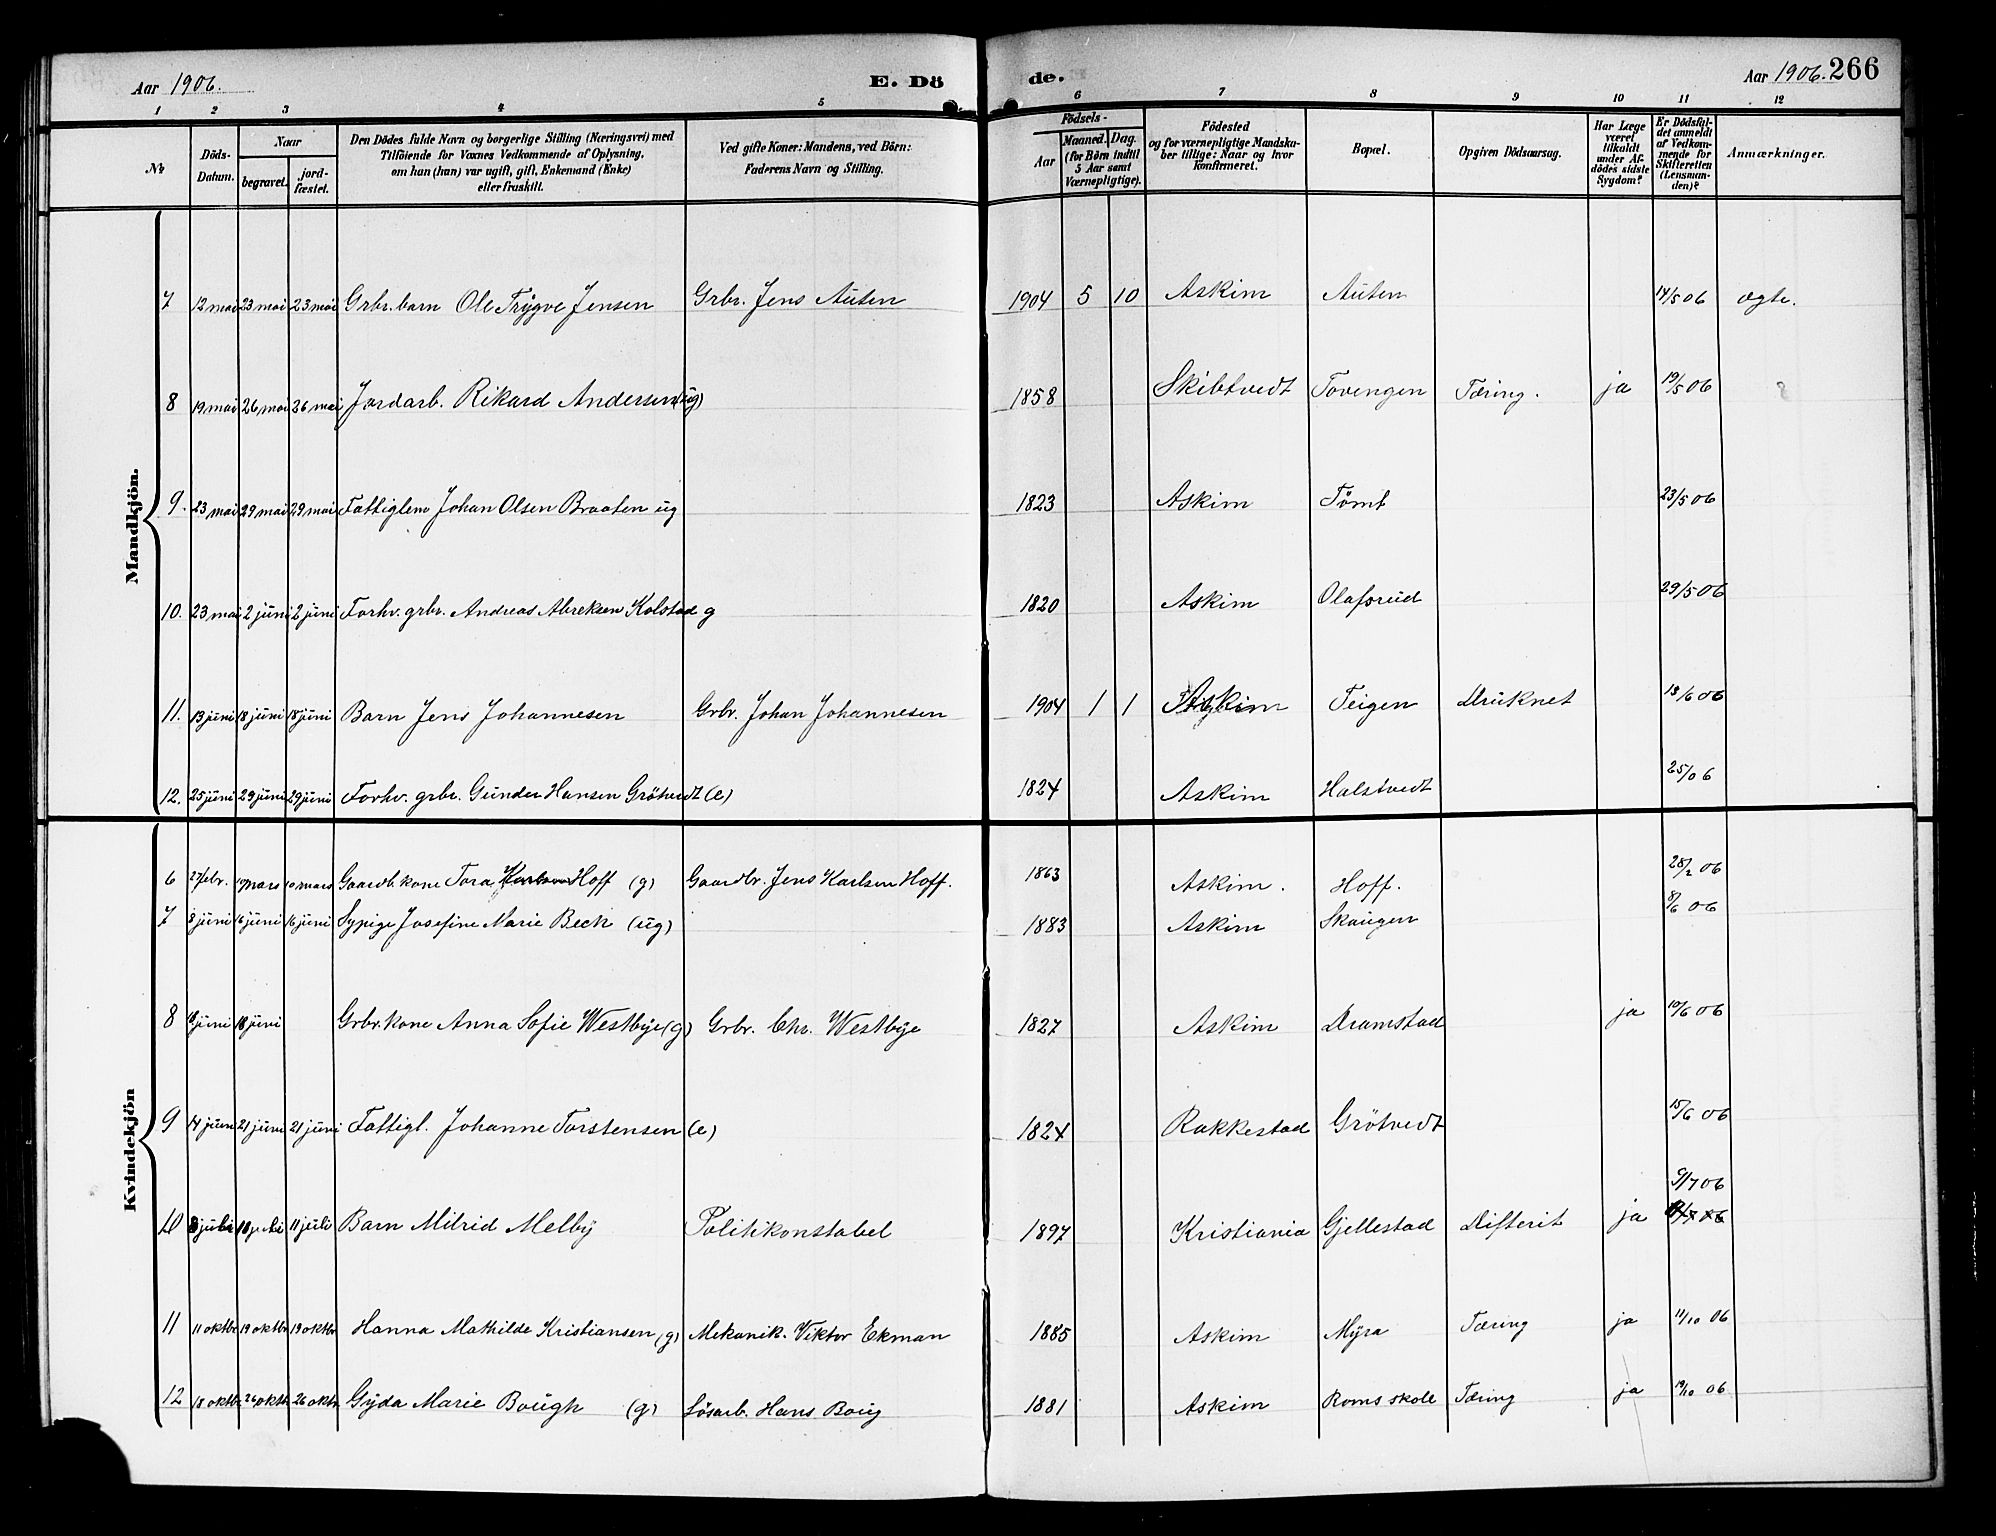 Aar 1906. E. Dö de. Aar 1906. 266
1 2 3 4 5 6 7 8 9 10 11 12
Nr.
Döds-
Datum.
Naar
begravet.
jord-
fæstet.
Den Dödes fulde Navn og borgerlige Stilling (Næringsvei) med
Tilföiende for Voxnes Vedkommende af Oplysning,
om han (hun) var ugift, gift, Enkemand (Enke)
eller fraskilt.
Ved gifte Koner: Mandens, ved Börn:
Faderens Navn og Stilling.
Födsels-
Aar
Maaned.
Dag.
(for Börn indtil
5 Aar samt
Værnepligtige).
Födested
og for værnepligtige Mandska-
ber tillige: Naar og hvor
konfirmeret.
Bopæl.
Opgiven Dödsaarsag.
Har Læge
været
tilkaldt
under Af-
dödes sidste
Sygdom?
Er Dödsfal-
det anmeldt
af Vedkom-
mende for
Skifteretten
(Lensman-
den)?
Anmærkninger.
Mandkjön.
7 12 mai 23 mai 23 mai Grbr. barn Ole Trygve Jensen Grbr. Jens Auten 1904 5 10 Askim Auten 14/5 06 ægte.
8 19 mai 26 mai 26 mai Jordarb. Rikard Andersen (ug) 1858 Skibtvedt Tovengen Tæring. ja 19/5 06
9. 23 mai 29 mai 29 mai Fattiglem Johan Olsen Braaten ug 1823 Askim Tømt 23/5 06
10. 23 mai 2 juni 2 juni Forhv. grbr. Andreas Abreksen Kolstad g 1820 Askim Olafsrud 29/5 06
11. 13 juni 18 juni 18 juni Barn Jens Johannesen Grbr. Johan Johannesen 1904 1 1 Askim Teigen Druknet 13/6 06
12. 25 juni 29 juni 29 juni Forhv. grbr. Gunder Hansen Grötvedt (e) 1824 Askim Halstvedt 25/06
Kvindekjön
6 27 febr. 10 mars 10 mars Gaardb. kone Tora Karlsen Hoff (g) Gaardbr. Jens Karlsen Hoff. 1863 Askim. Hoff. 28/2 06
7 8 juni 16 juni 16 juni Sypige Josefine Marie Beck (ug) 1883 Askim Skaugen 8/6 06
8 juni 18 juni Grbr. kone Anna Sofie Westbye (g) Grbr. Chr. Westbye 1827 Askim Dramstad ja 10/6 06
9 14 juni 21 juni 21 juni Fattigl. Johanne Torstensen (e) 1824 Rakkestad Grötvedt 15/6 06
9/7 06
10 8 juli juli 11 juli Barn Milrid Melby Politikonstabel 1897 Kristiania Gjellestad Difterit ja
11 11 oktbr 19 oktbr 19 oktbr Hanna Mathilde Kristiansen (g) Mekanik. Viktor Ekman 1885 Askim Myra Tæring ja 11/10 06
12 18 oktbr 26 oktb. 26 oktb. Gyda Marie Bough (g) Løsarb. Hans Boug 1881 Askim Roms skole Tæring ja 19/10 06